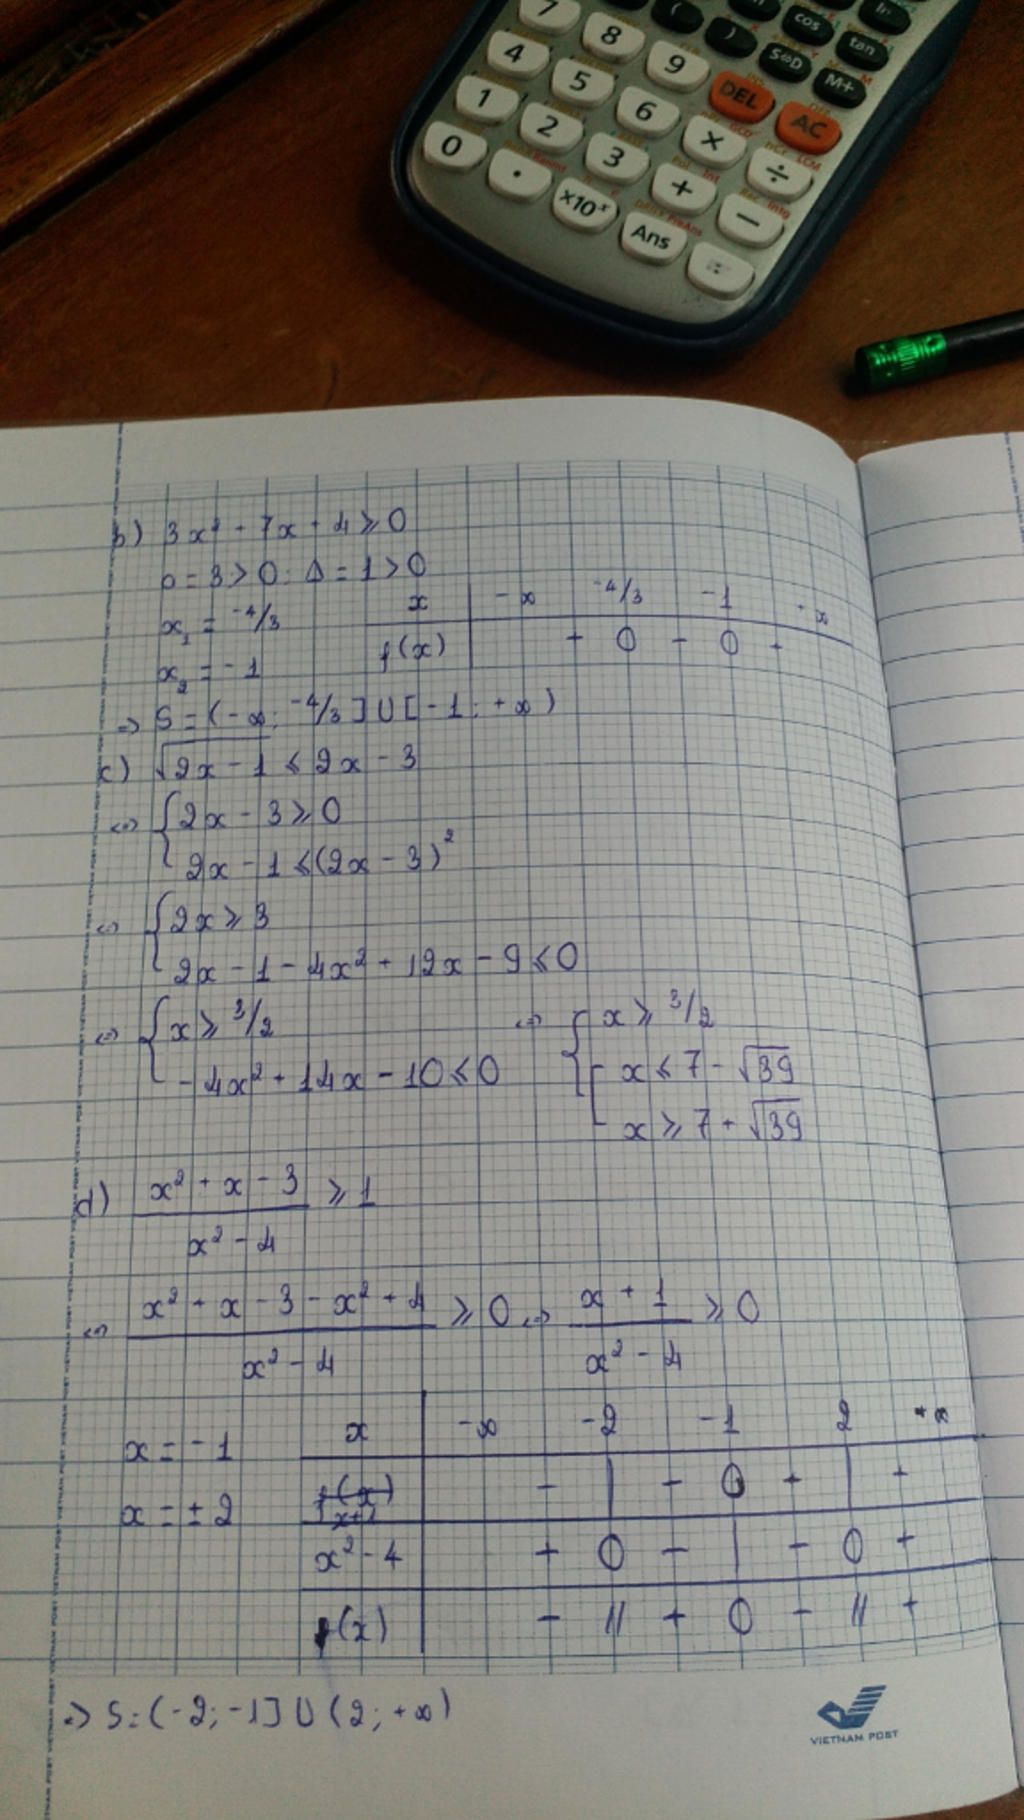 7 8 9 ( ) cos S⇔D tan M+ ln
4 5 6 DEL AC
1 2 3 × ÷
0 . ×10ˣ Ans + − =
b) 3x² + 7x + 4 ≥ 0
a = 3 > 0; Δ = 1 > 0
x₁ = -4/3
x₂ = -1
x -∞ -4/3 -1 +∞
f(x) + 0 - 0 +
=> S = (-∞; -4/3] ∪ [-1; +∞)
c) √(2x - 1) ≤ 2x - 3
<=> { 2x - 3 ≥ 0
2x - 1 ≤ (2x - 3)²
<=> { 2x ≥ 3
2x - 1 - 4x² + 12x - 9 ≤ 0
<=> { x ≥ 3/2
-4x² + 14x - 10 ≤ 0
<=> { x ≥ 3/2
[ x ≤ 7 - √39
x ≥ 7 + √39
d) (x² + x - 3)/(x² - 4) ≥ 1
<=> (x² + x - 3 - x² + 4)/(x² - 4) ≥ 0 <=> (x + 1)/(x² - 4) ≥ 0
x = -1
x = ±2
x -∞ -2 -1 2 +∞
x+1 - | - 0 + | +
x² - 4 + 0 - | - 0 +
f(x) - || + 0 - || +
=> S = (-2; -1] ∪ (2; +∞)
VIETNAM POST